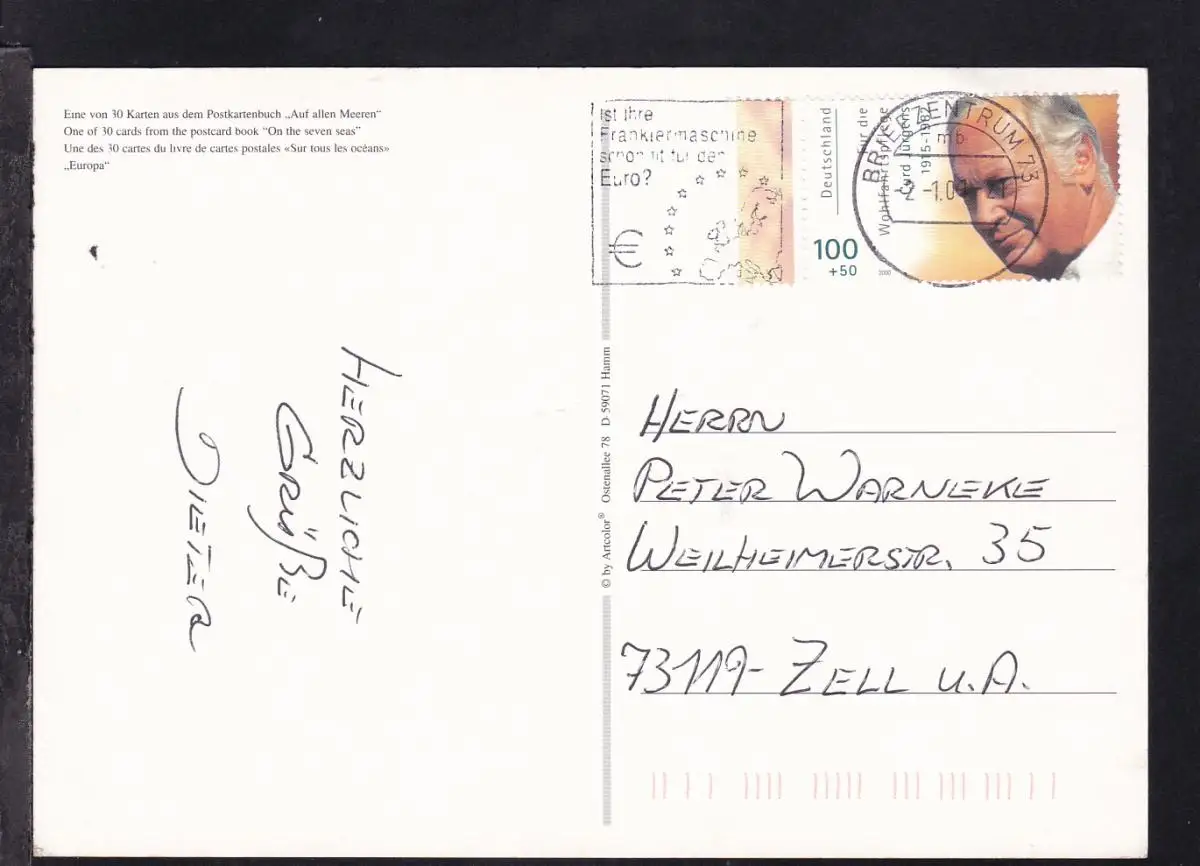 Eine von 30 Karten aus dem Postkartenbuch „Auf allen Meeren“
One of 30 cards from the postcard book “On the seven seas”
Une des 30 cartes du livre de cartes postales «Sur tous les océans»
„Europa“
HERZLICHE
GRÜßE
DIETER
© by Artcolor® Ostenallee 78 D-59071 Hamm
Ist Ihre
Frankiermaschine
schon fit für den
Euro?
€
Deutschland
Für die
Wohlfahrtspflege
Curd Jürgens
1915-1982
100
+50
2000
BRIEFZENTRUM 73
mb
HERRN
PETER WARNEKE
WEILHEIMERSTR. 35
73119- ZELL U.A.